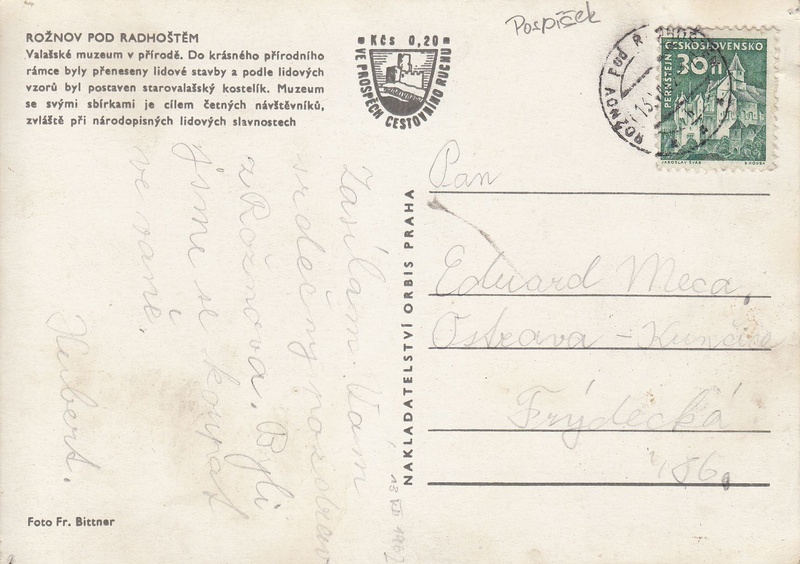 ROŽNOV POD RADHOŠTĚM
Valašské muzeum v přírodě. Do krásného přírodního
rámce byly přeneseny lidové stavby a podle lidových
vzorů byl postaven starovalašský kostelík. Muzeum
se svými sbírkami je cílem četných návštěvníků,
zvláště při národopisných lidových slavnostech
Kčs 0,20
VE PROSPĚCH CESTOVNÍHO RUCHU
Pospíšek
ROŽNOV pod R
ČESKOSLOVENSKO
30h
PERNŠTEJN
JAROSLAV ŠVÁB
Zasílám Vám
srdečný pozdrav
z Rožnova. Byli
jsme se koupat
ve vaně.
Hubert.
13 VII 1962
NAKLADATELSTVÍ ORBIS PRAHA
Pan
Eduard Meca,
Ostrava - Kunčice
Frýdecká
486
Foto Fr. Bittner